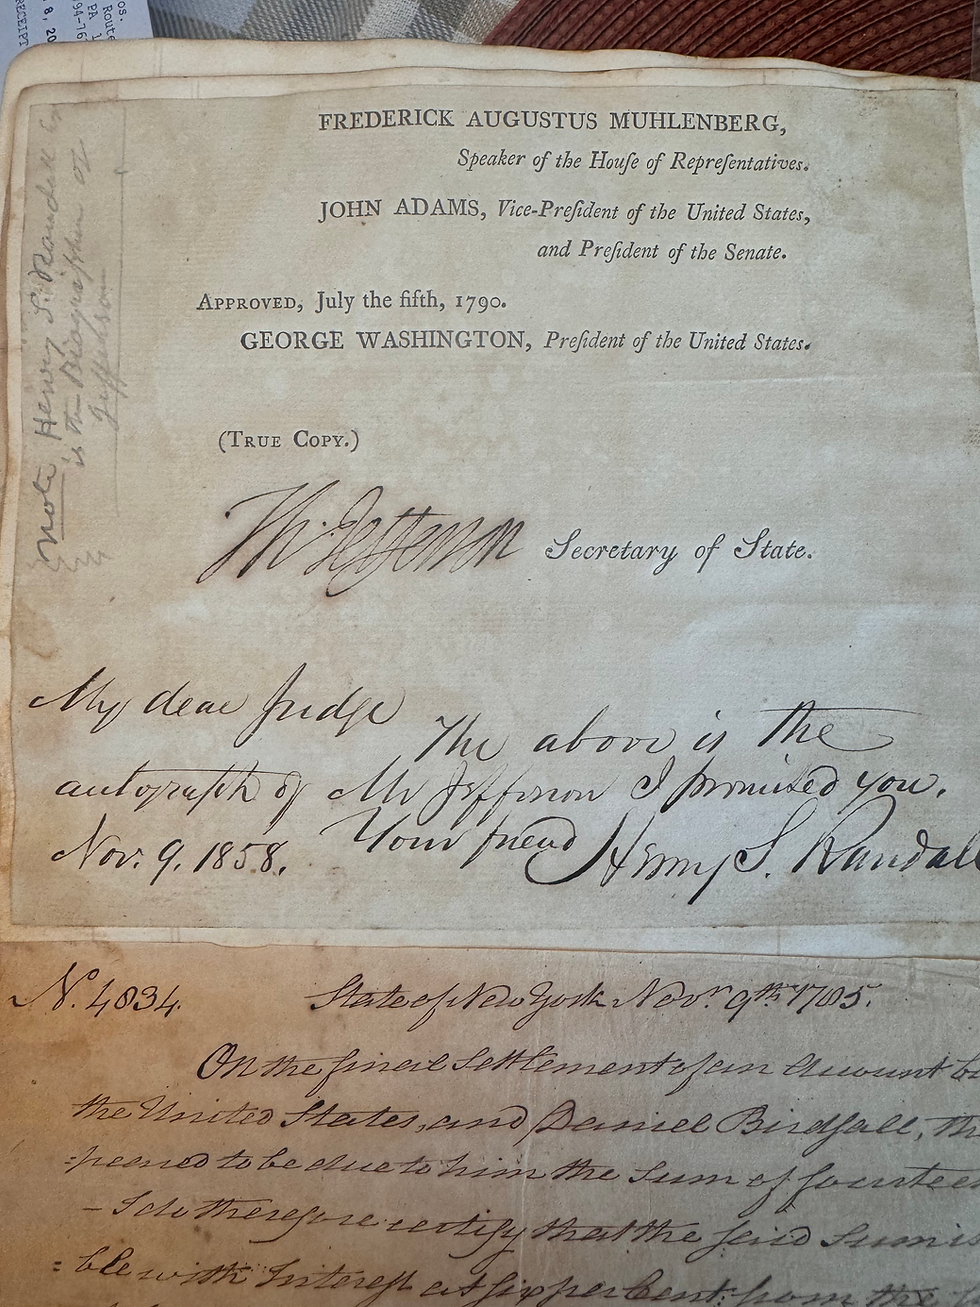 FREDERICK AUGUSTUS MUHLENBERG,
Speaker of the Houſe of Repreſentatives.
JOHN ADAMS, Vice-Preſident of the United States,
and Preſident of the Senate.
APPROVED, July the fifth, 1790.
GEORGE WASHINGTON, Preſident of the United States.
(TRUE COPY.)
Th: Jefferson Secretary of State.
My dear Judge
The above is the
autograph of Mr Jefferson I promised you.
Nov. 9, 1858. Your friend Henry S. Randall
note Henry S. Randall
is the Biographer of
Jefferson
No. 4034. State of New York Novr. 9th 1785.
On the final Settlement of an Account
the United States, and Daniel Birdsall,
peared to be due to him the Sum of fourteen
- I do therefore certify that the said Sum is
ble with Interest at six per Cent: from the
RECEIPT